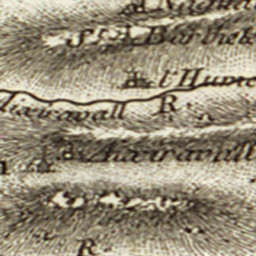 St. A. Barthele
l'Hume
Aixiravall R.
Aixiravall
R.